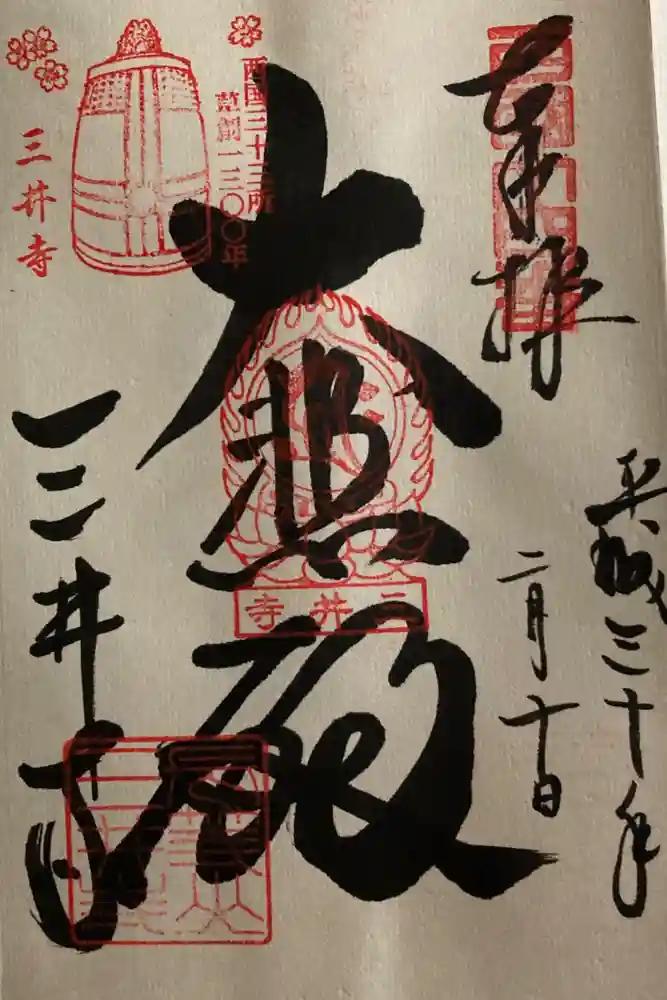 奉拝
平成三十年
二月十日
西国三十三所
草創一三〇〇年
大悲殿
三井寺
三井寺
三井寺